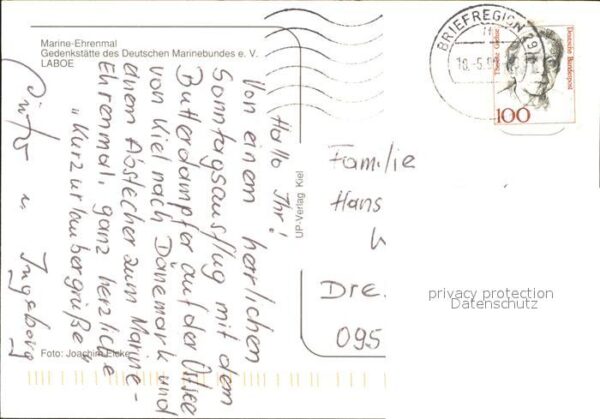 Marine-Ehrenmal
Gedenkstätte des Deutschen Marinebundes e. V.
LABOE
Hallo Ihr!
Von einem herrlichen
Sonntagsausflug mit dem
Butterdampfer auf der Ostsee
von Kiel nach Dänemark und
einem Abstecher zum Marine-
Ehrenmal, ganz herzliche
"Kurzurlaubergrüße"
u Ingeborg
Foto: Joachim Eicke
UP-Verlag Kiel
BRIEFREGION 29
Deutsche Bundespost
100
Familie
Hans
Dre
095
privacy protection
Datenschutz